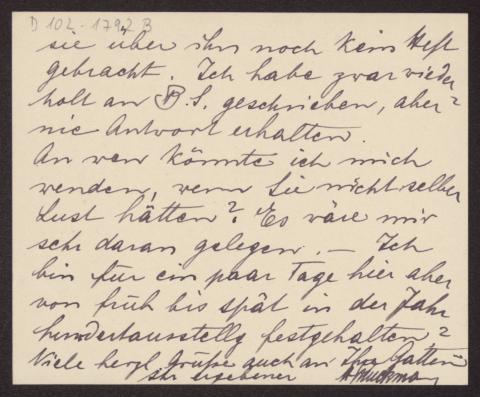 D 102-1792 B
sie über ihn noch kein Heft
gebracht. Ich habe zwar wieder
holt an B. S. geschrieben, aber
nie Antwort erhalten.
An wen könnte ich mich
wenden, wenn Sie nicht selber
Lust hätten? Es wäre mir
sehr daran gelegen. — Ich
bin für ein paar Tage hier aber
von früh bis spät in der Jahr
hundertausstellg festgehalten
Viele herzl. Grüße auch an Ihre Gattin
Ihr ergebener